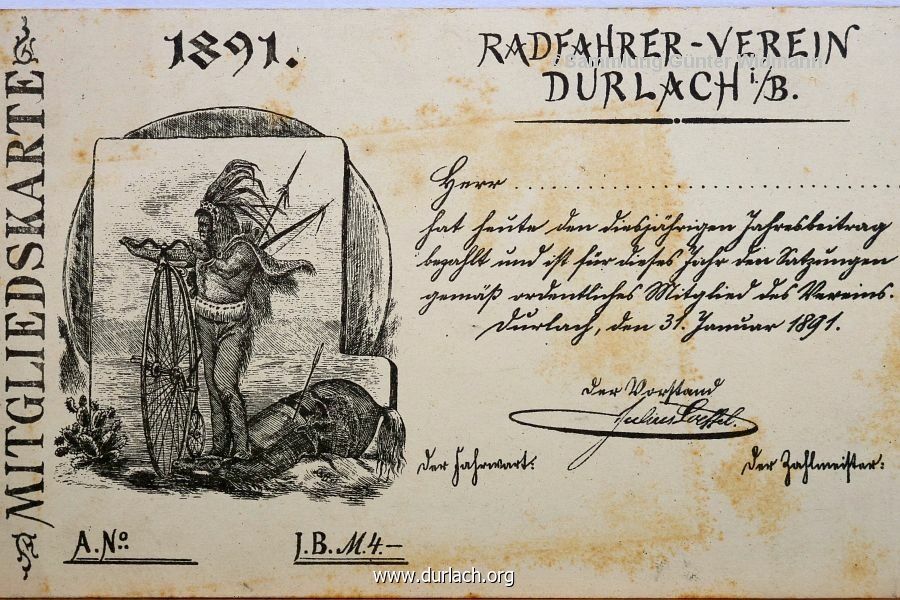 MITGLIEDSKARTE
1891.
RADFAHRER-VEREIN
© Sammlung Günter Widmann
DURLACH i/B.
Herr ........................................
hat heute den diesjährigen Jahresbeitrag
bezahlt und ist für dieses Jahr den Satzungen
gemäß ordentliches Mitglied des Vereins.
Durlach, den 31. Januar 1891.
Der Vorstand
Julius
Der Fahrwart:
Der Zahlmeister:
A. No:
J.B. M. 4.—
www.durlach.org